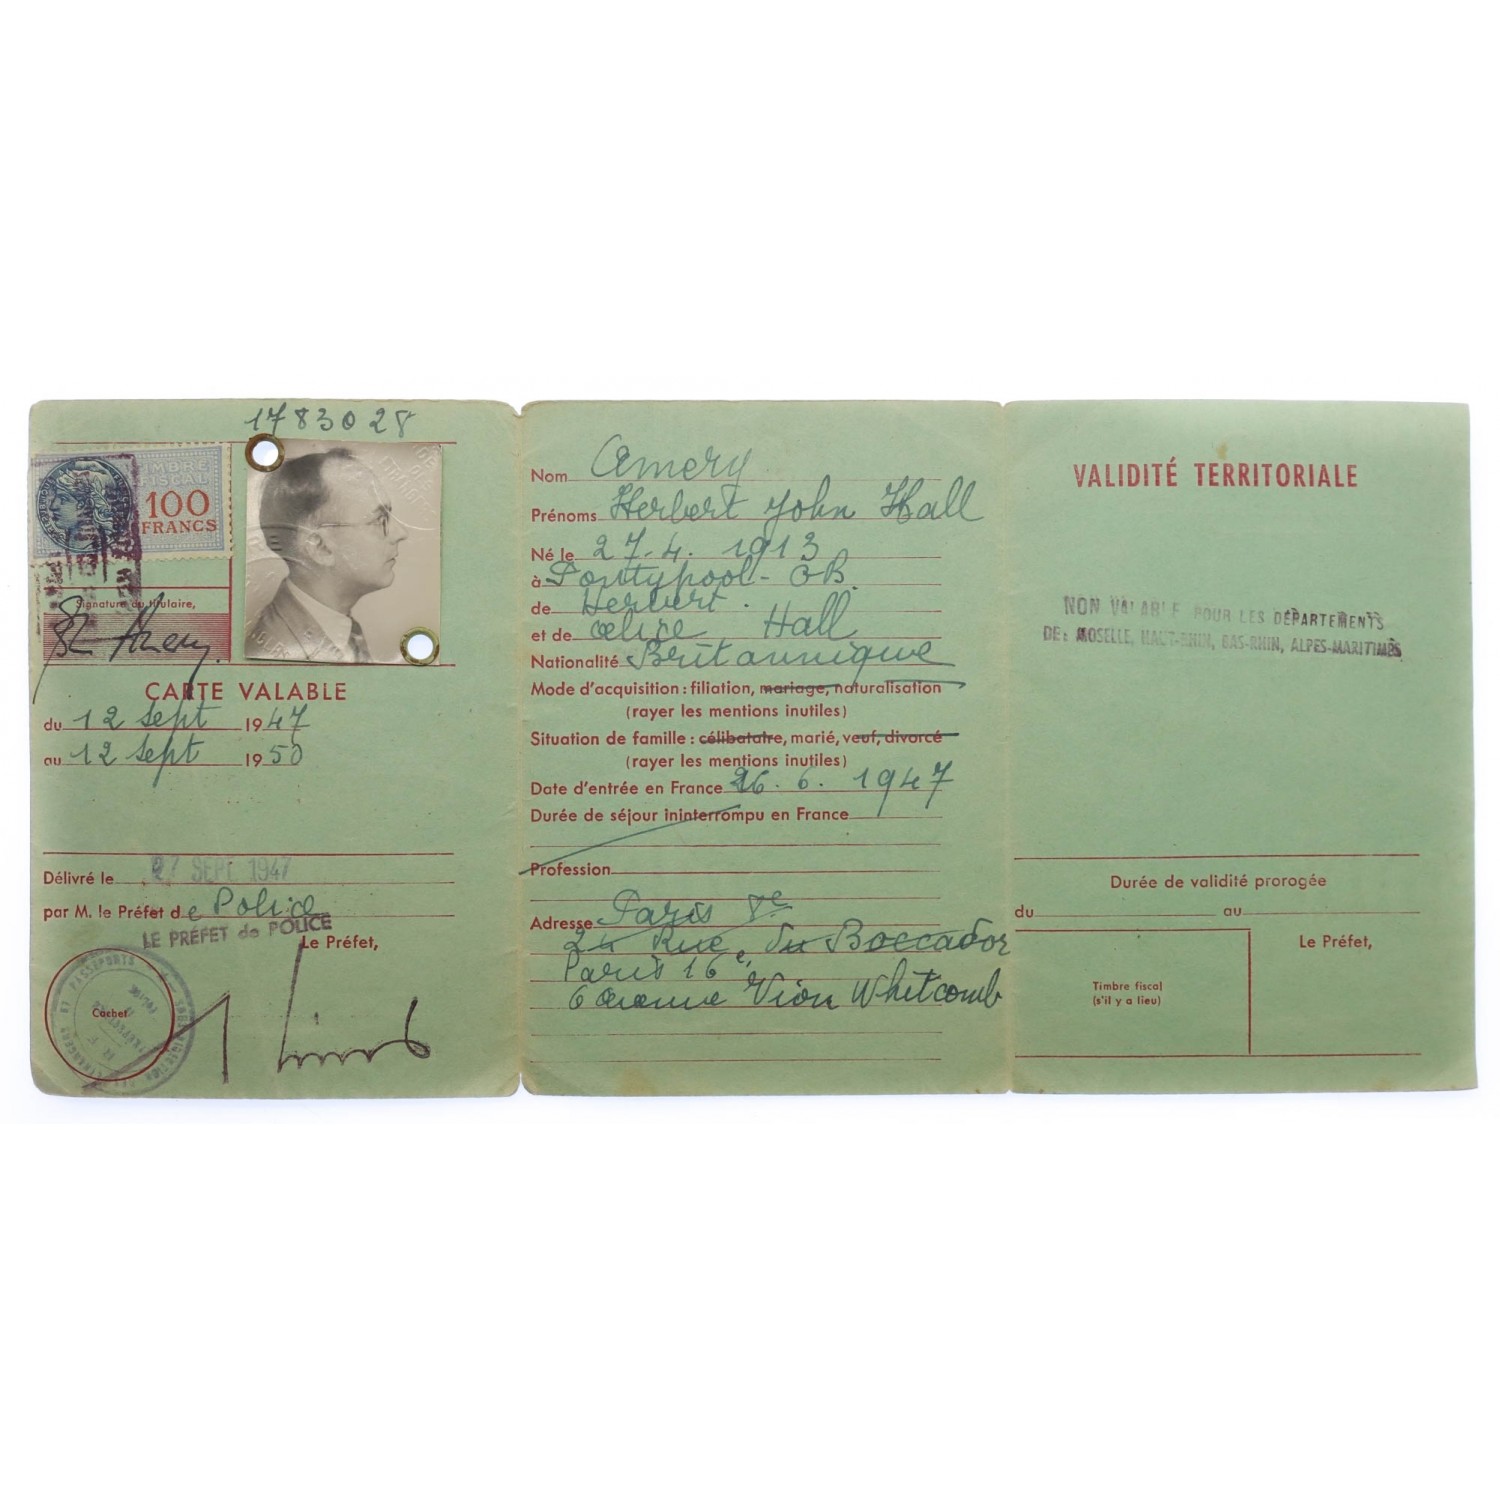 1783028
TIMBRE
FISCAL
100
FRANCS
Signature du titulaire,
CARTE VALABLE
du 12 sept 1947
au 12 sept 1950
Délivré le 27 SEPT 1947
par M. le Préfet de Police
LE PRÉFET de POLICE
Le Préfet,
Cachet
Nom Amery
Prénoms Herbert John Hall
Né le 27.4.1913
à Pontypool - GB.
de Herbert.
et de Alice Hall
Nationalité Britannique
Mode d'acquisition : filiation, mariage, naturalisation
(rayer les mentions inutiles)
Situation de famille : célibataire, marié, veuf, divorcé
(rayer les mentions inutiles)
Date d'entrée en France 26.6.1947
Durée de séjour ininterrompu en France
Profession
Adresse Paris 8e
24 Rue du Boccador
Paris 16e,
6 avenue Vion Whitcomb
VALIDITÉ TERRITORIALE
NON VALABLE POUR LES DÉPARTEMENTS
DE: MOSELLE, HAUT-RHIN, BAS-RHIN, ALPES-MARITIMES
Durée de validité prorogée
du au
Le Préfet,
Timbre fiscal
(s'il y a lieu)